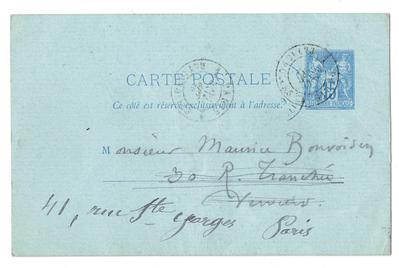 CARTE POSTALE
Ce côté est réservé exclusivement à l'adresse.
Monsieur Maurice Bonvoisin
30 R. Tranchée
Verviers
41, rue Ste
Georges
Paris
15